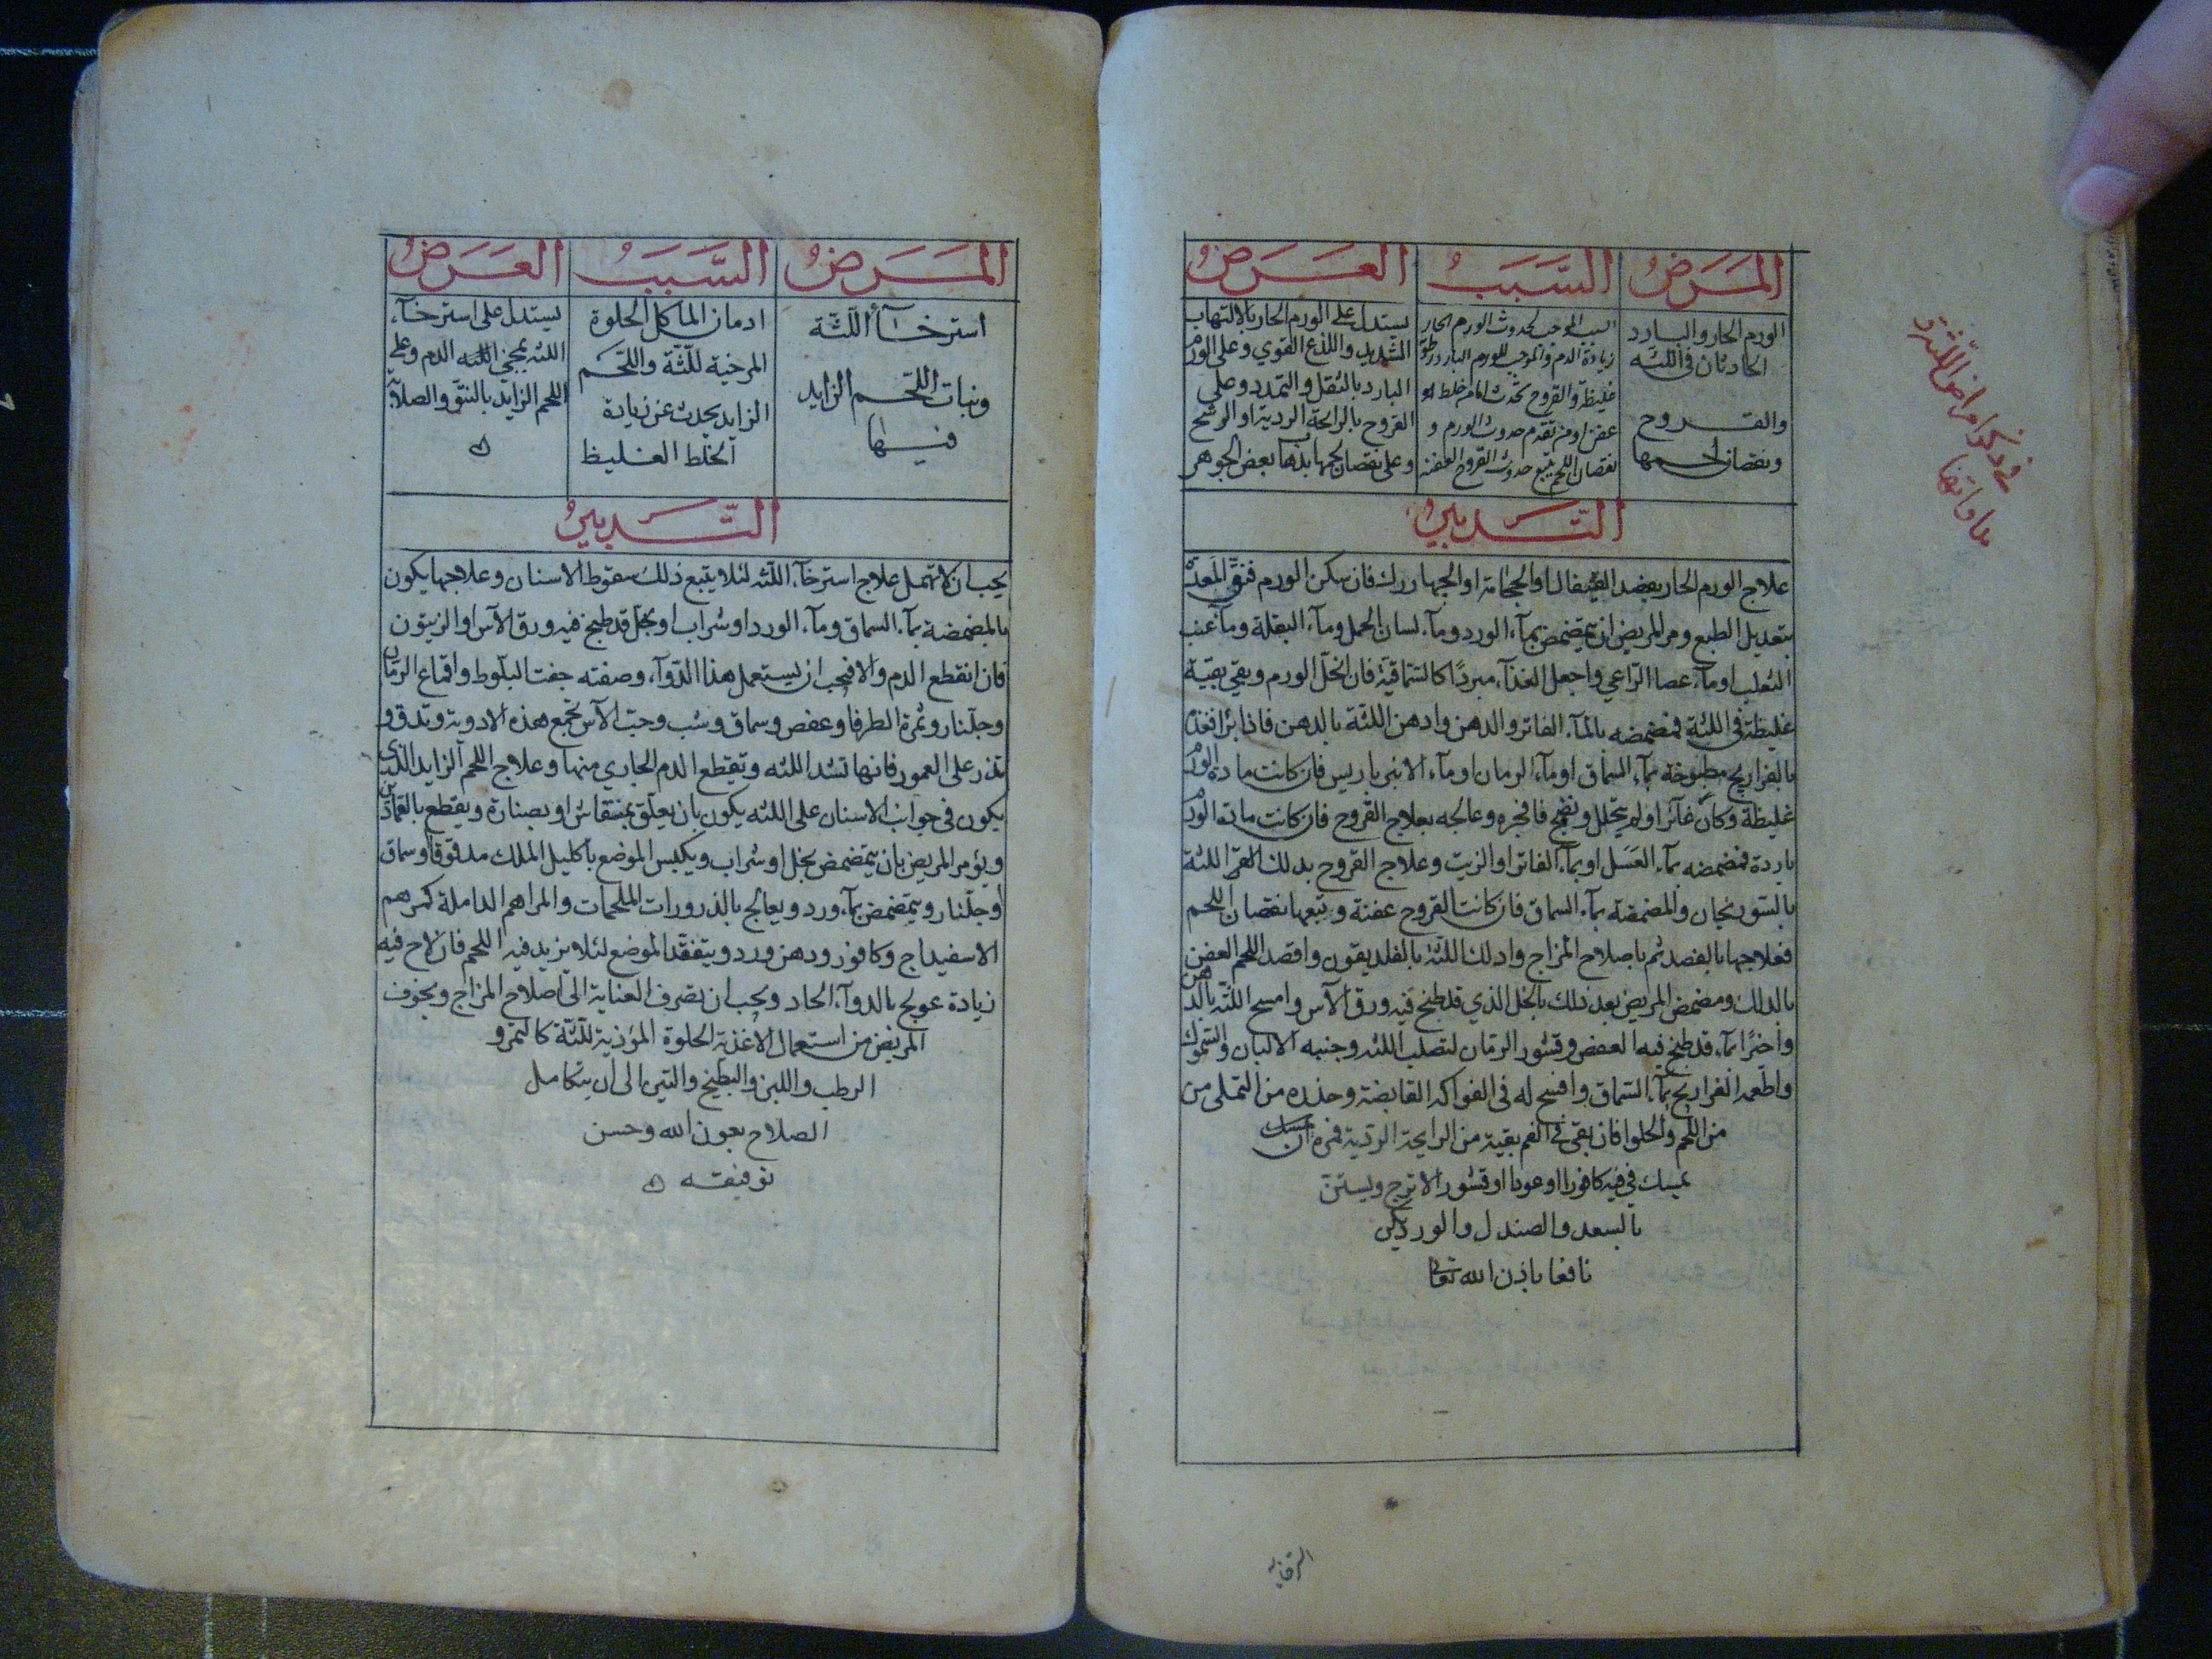 في ذكر امراض اللثة
مداواتها
المَرَضُ
السَّبَبُ
العَرَضُ
الورم الحار والبارد
الحادثان في اللثه
والقروح
ونقصان لحمها
السبب الموجب لحدوث الورم الحار
زيادة الدم والموجب للورم البارد رطوبة
غليظة والقروح تحدث اما من خلط
عفن او من تقدم حدوث الورم و
نقصان اللحم يتبع حدوث القروح العفنه
يستدل على الورم الحار بالالتهاب
الشديد واللذع القوي وعلى الورم
البارد بالثقل والتمدد وعلى
القروح بالرائحة الردية او الرشح
وعلى نقصان لحمها بذهاب بعض الجوهر
التَّدبيرُ
علاج الورم الحار بفصد القيفال او الحجامة او الجهارك فان سكن الورم فنق المعدة
بتعديل الطبع ومر المريض ان يتمضمض بمآء الورد ومآء لسان الحمل ومآء البقلة ومآء عنب
الثعلب او مآء عصا الراعي واجعل الغذآء مبردًا كالسماقية فان انحل الورم وبقي بقية
غليظة في اللثة فمضمضه بالمآء الفاتر والدهن وادهن اللثة بالدهن فاذا برأ فغذه
بالفراريج مطبوخة بمآء السماق او مآء الرمان او مآء الانبرباريس فان كانت مادة الورم
غليظة وكان غآئرا ولم يتحلل ونضج فافجره وعالجه بعلاج القروح فان كانت مادة الورم
باردة فمضمضه بمآء العسل او بمآء الفاتر او الزيت وعلاج القروح بدلك اللثة
بالسورنجان والمضمضة بمآء السماق فان كانت القروح عفنة وتبعها نقصان اللحم
فعلاجها بالفصد ثم باصلاح المزاج وادلك اللثة بالفلديقون واقصد اللحم العفن
بالدلك ومضمض المريض بعد ذلك بالخل الذي قد طبخ فيه ورق الآس وامسح اللثه بالدهن
واخيرًا بمآء قد طبخ فيه العفص وقشور الرمان لتصلب اللثه وجنبه الالبان والسموك
واطعمه الفراريج بمآء السماق وافسح له في الفواكه القابضة وحذره من التملي من
من اللحم والحلوا فان بقي في الفم بقية من الرايحة الردية فمره ان يمسك
يمسك في فيه كافورا او عودا او قشور الاترج ويستن
بالسعد والصندل والورد يكن
نافعا باذن الله تعالى
المَرَضُ
السَّبَبُ
العَرَضُ
استرخآء اللثة
ونبات اللحم الزايد
فيها
ادمان الماكل الحلوة
المرخية للّثة واللحم
الزايد يحدث عن زيادة
الخلط الغليظ
يستدل على استرخآء
اللثه بمجئ الدم وعلى
اللحم الزايد بالنتو والصلابة
ه
التَّدبيرُ
يجب ان لا تهمل علاج استرخآء اللثه لئلا يتبع ذلك سقوط الاسنان وعلاجها يكون
بالمضمضة بمآء السماق ومآء الورد او شراب او بخل قد طبخ فيه ورق الآس او الزيتون
فان انقطع الدم والا فيجب ان يستعمل هذا الدوآء وصفته جفت البلوط واقماع الرمان
وجلنار وثمرة الطرفا وعفص وسماق وشب وحب الآس تجمع هذه الادوية وتدق و
تذر على العمور فانها تشد اللثه وتقطع الدم الجاري منها وعلاج اللحم الزايد الذي
يكون في جوانب الاسنان على اللثه يكون بان يعلق بمنقاش او بصنارة ويقطع بالقمادين
ويؤمر المريض بان يتمضمض بخل او شراب ويكبس الموضع باكليل الملك مدقوقا وسماق
وجلنار ويتمضمض بمآء ورد ويعالج بالذرورات الملحمات والمراهم الداملة كمرهم
الاسفيداج وكافور ودهن ورد ويتفقد الموضع لئلا يزيد فيه اللحم فان لاح فيه
زيادة عولج بالدوآء الحاد ويجب ان تصرف العناية الى اصلاح المزاج ويخوف
المريض من استعمال الاغذية الحلوة المؤذية للّثة كالتمر و
الرطب واللبن والبطيخ والتين الى ان يتكامل
الصلاح بعون الله وحسن
توفيقه ه